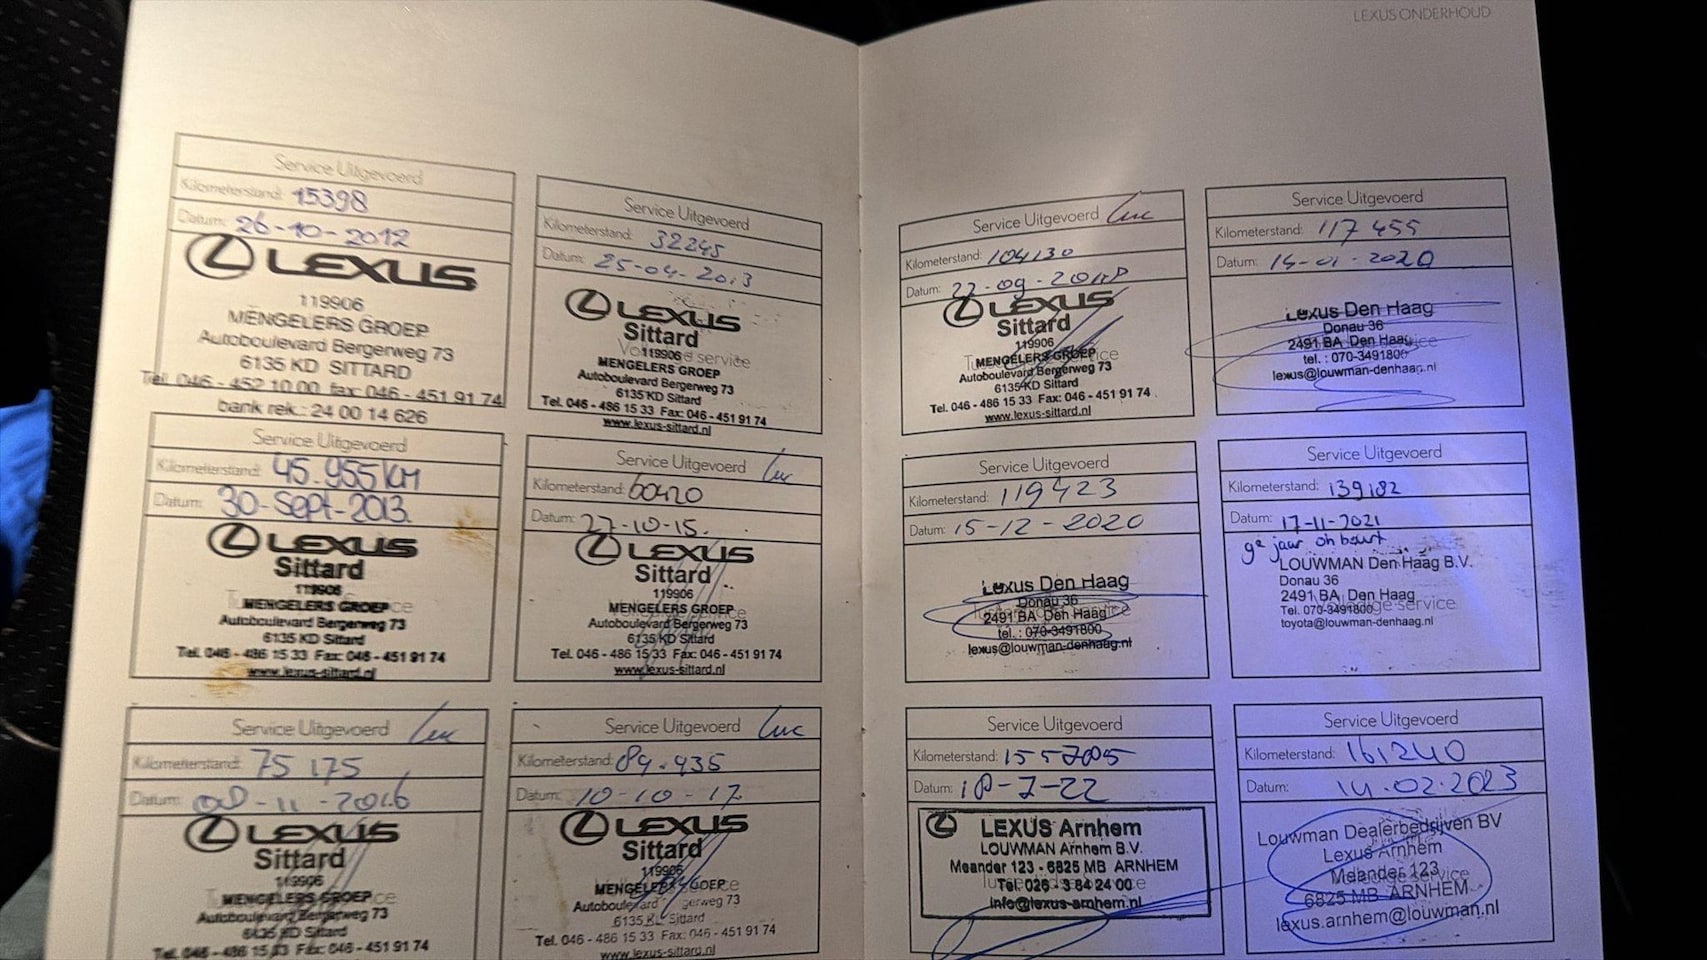 LEXUS ONDERHOUD
Service Uitgevoerd
Kilometerstand: 15398
Datum: 26-10-2012
LEXUS
119906
MENGELERS GROEP
Autoboulevard Bergerweg 73
6135 KD SITTARD
Tel. 046 - 452 10 00 fax: 046 - 451 91 74
bank rek.: 24 00 14 626
Service Uitgevoerd
Kilometerstand: 32245
Datum: 25-04-2013
LEXUS
Sittard
119906 service
MENGELERS GROEP
Autoboulevard Bergerweg 73
6135 KD Sittard
Tel. 046 - 486 15 33 Fax: 046 - 451 91 74
www.lexus-sittard.nl
Service Uitgevoerd
Kilometerstand: 45.955 KM
Datum: 30-Sept-2013.
LEXUS
Sittard
119906
MENGELERS GROEP
Autoboulevard Bergerweg 73
6135 KD Sittard
Tel. 046 - 486 15 33 Fax: 046 - 451 91 74
www.lexus-sittard.nl
Service Uitgevoerd Luc
Kilometerstand: 60420
Datum: 27-10-15.
LEXUS
Sittard
119906
MENGELERS GROEP
Autoboulevard Bergerweg 73
6135 KD Sittard
Tel. 046 - 486 15 33 Fax: 046 - 451 91 74
www.lexus-sittard.nl
Service Uitgevoerd Luc
Kilometerstand: 75175
Datum: 08-11-2016
LEXUS
Sittard
119906
MENGELERS GROEP
Autoboulevard Bergerweg 73
6135 KD Sittard
Tel. 046 - 486 15 33 Fax: 046 - 451 91 74
Service Uitgevoerd Luc
Kilometerstand: 89.435
Datum: 10-10-17
LEXUS
Sittard
119906
MENGELERS GROEP
Autoboulevard Bergerweg 73
6135 KD Sittard
Tel. 046 - 486 15 33 Fax: 046 - 451 91 74
www.lexus-sittard.nl
Service Uitgevoerd Luc
Kilometerstand: 104130
Datum: 27-09-2018
LEXUS
Sittard
119906
MENGELERS GROEP
Autoboulevard Bergerweg 73
6135 KD Sittard
Tel. 046 - 486 15 33 Fax: 046 - 451 91 74
www.lexus-sittard.nl
Service Uitgevoerd
Kilometerstand: 117455
Datum: 14-01-2020
Lexus Den Haag
Donau 36
2491 BA Den Haag
tel. : 070-3491800
lexus@louwman-denhaag.nl
Service Uitgevoerd
Kilometerstand: 119423
Datum: 15-12-2020
Lexus Den Haag
Donau 36
2491 BA Den Haag
tel. : 070-3491800
lexus@louwman-denhaag.nl
Service Uitgevoerd
Kilometerstand: 139182
Datum: 17-11-2021
9e jaar oh beurt
LOUWMAN Den Haag B.V.
Donau 36
2491 BA Den Haag
Tel. 070-3491800 service
toyota@louwman-denhaag.nl
Service Uitgevoerd
Kilometerstand:
Datum: 18-7-22
LEXUS Arnhem
LOUWMAN Arnhem B.V.
Meander 123 - 6825 MB ARNHEM
Tel. 026 - 3 84 24 00
info@lexus-arnhem.nl
Service Uitgevoerd
Kilometerstand: 161240
Datum: 14.02.2023
Louwman Dealerbedrijven BV
Lexus Arnhem
Meander 123
6825 MB ARNHEM
lexus.arnhem@louwman.nl